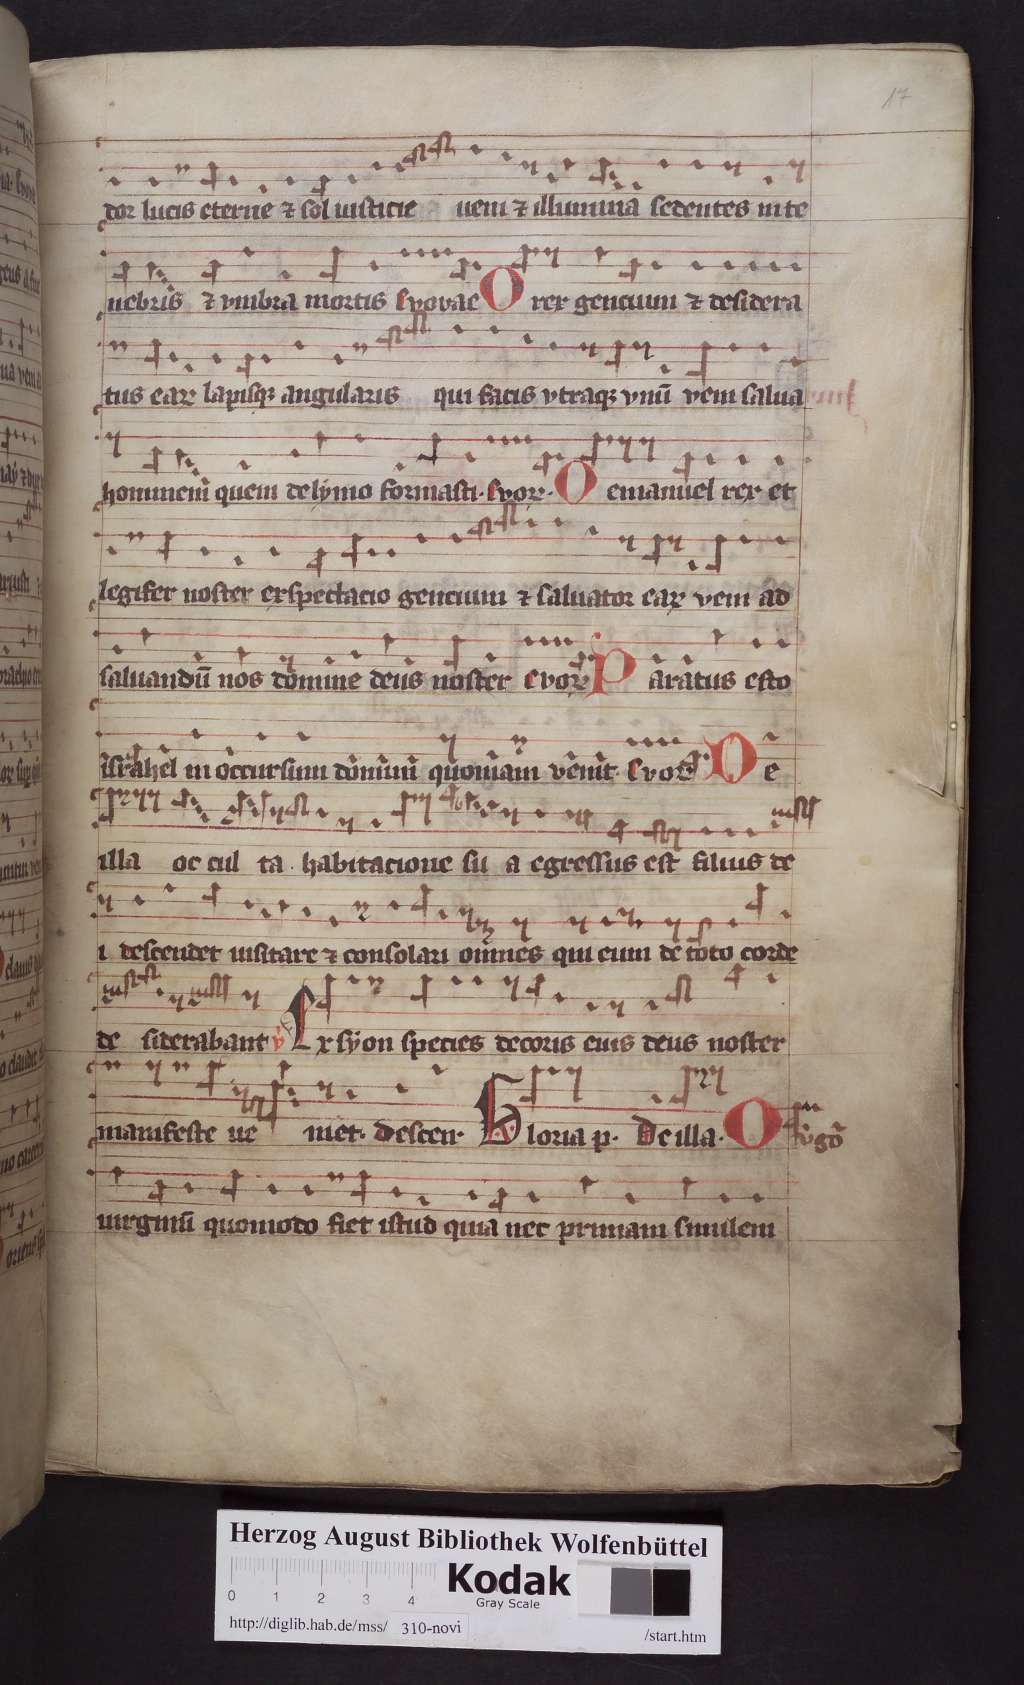 17
dor lucis eterne ⁊ sol iusticie ueni ⁊ illumina sedentes in te
nebris ⁊ vmbra mortis Evovae O rex gencium ⁊ desidera
tus eaꝝ lapisqꝫ angularis qui facis vtraqꝫ vnū veni salua
hominem quem de lymo formasti. Evoṽ. O emanuel rex et
legifer noster exspectacio gencium ⁊ saluator eaꝝ veni ad
saluandū nos domine deus noster Evoṽ Paratus esto
israhel in occursum dominū quoniam venit. Evoṽ De
illa oc cul ta habitacione su a egressus est filius de
i descendet uisitare ⁊ consolari omnes qui eum de toto corde
de siderabant ℣ Ex syon species decoris eius deus noster
manifeste ue niet. Descen. Gloria p. De illa. O v̾gō
uirginū quomodo fiet istud quia nec primam similem
Herzog August Bibliothek Wolfenbüttel
0 1 2 3 4
Kodak
Gray Scale
http://diglib.hab.de/mss/ 310-novi /start.htm